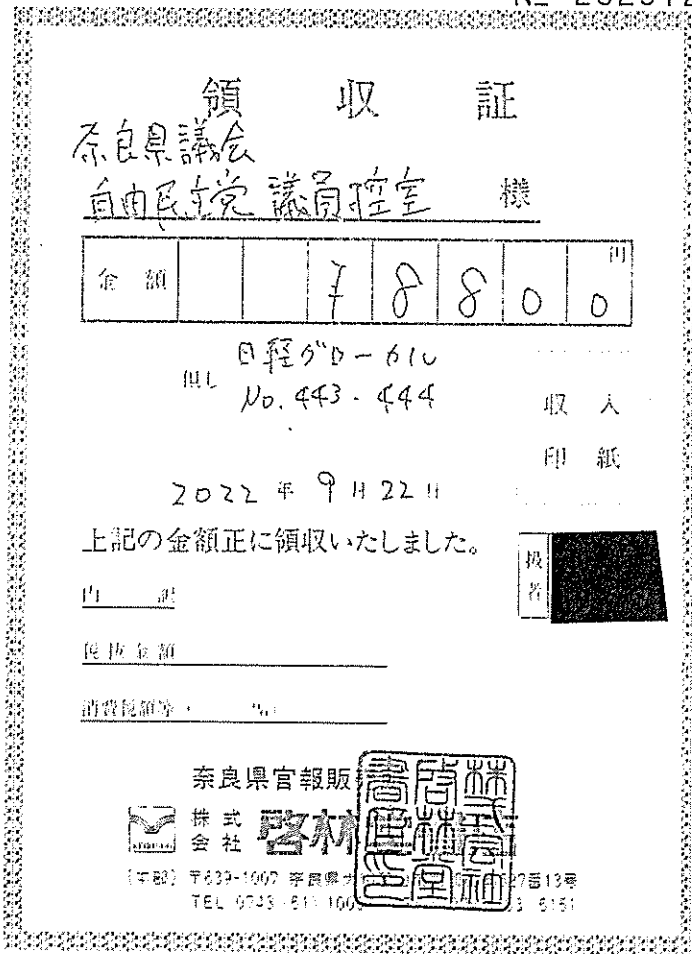 領収証
奈良県議会
自由民主党 議員控室 様
金額 ¥8800 円
但し 日経グローカル
No. 443・444
収入
印紙
2022年9月22日
上記の金額正に領収いたしました。
扱者
内訳
税抜金額
消費税額等
奈良県官報販
株式会社 啓林
株式会社啓林堂書店印
〒639-1007 奈良県
TEL 0743